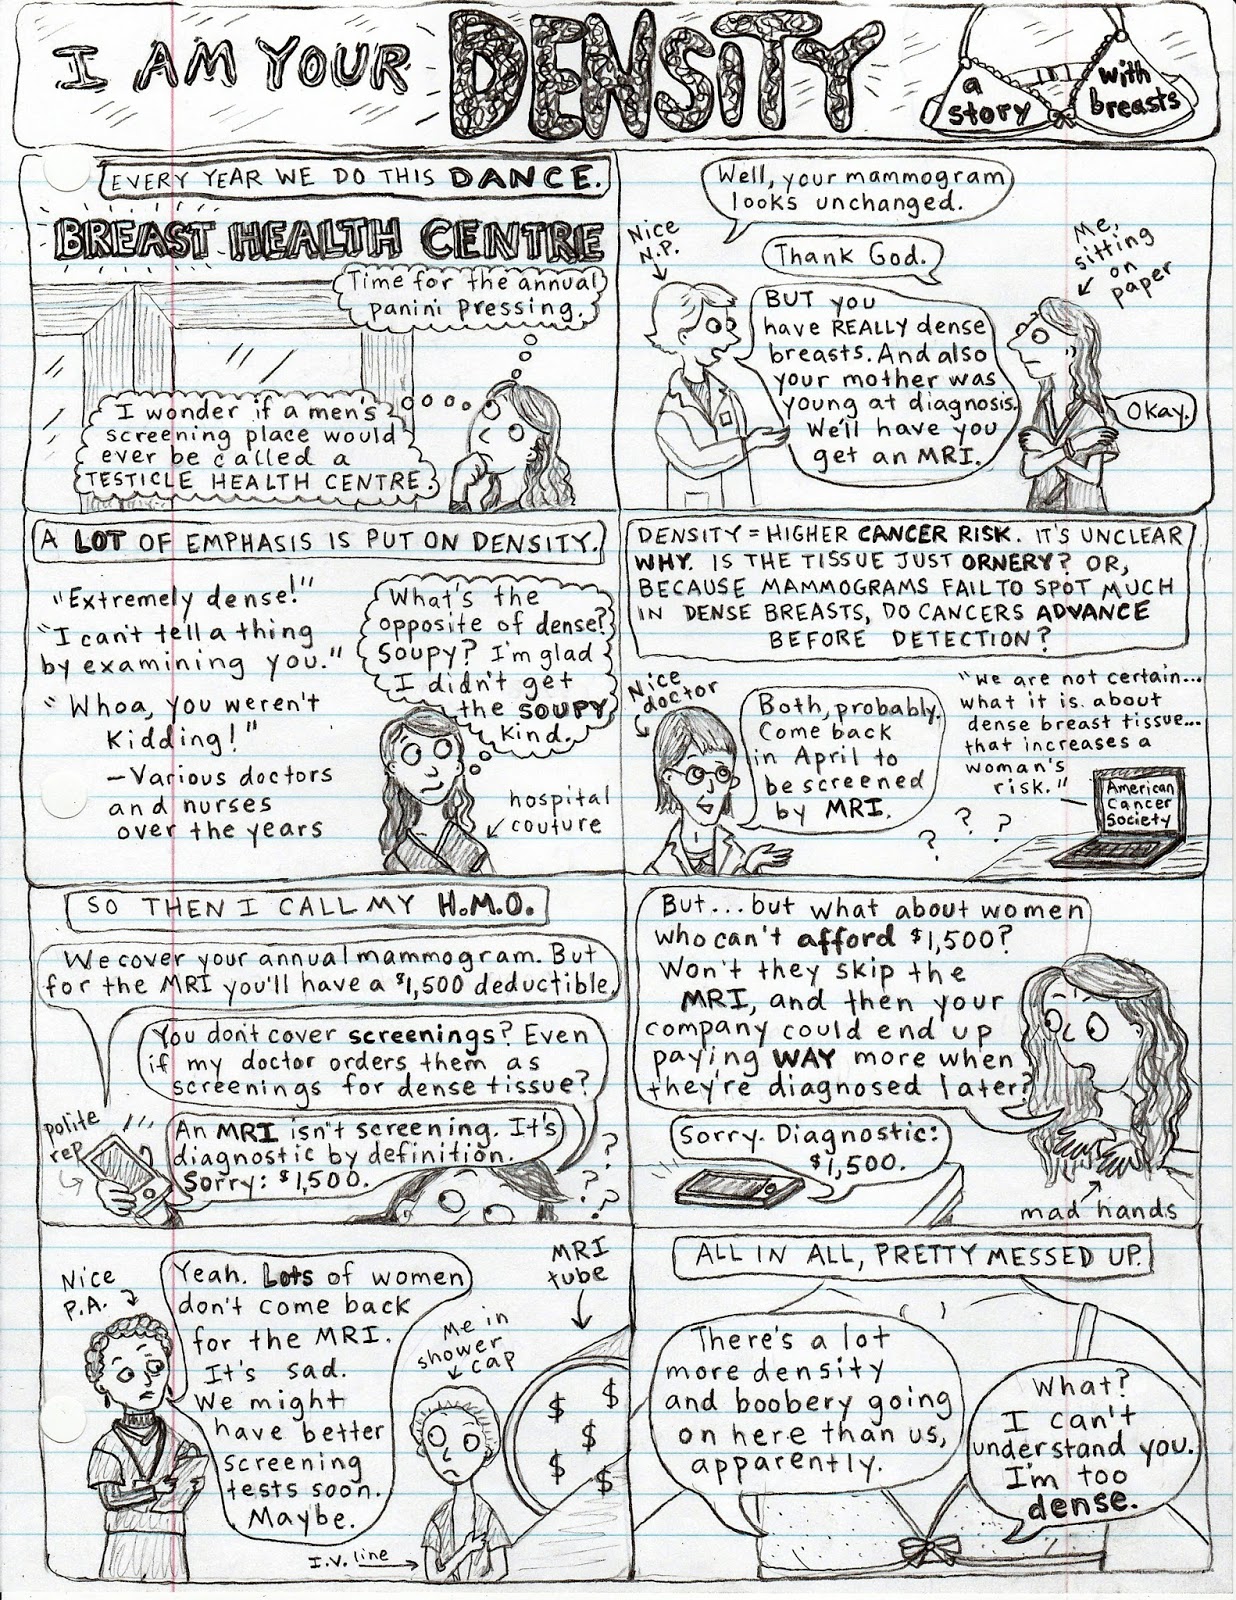 I AM YOUR DENSITY
a
story
with
breasts
EVERY YEAR WE DO THIS DANCE.
BREAST HEALTH CENTRE
Time for the annual
panini pressing.
I wonder if a men's
screening place would
ever be called a
TESTICLE HEALTH CENTRE.
Well, your mammogram
looks unchanged.
Nice
N.P.
Thank God.
Me,
sitting
on
paper
BUT you
have REALLY dense
breasts. And also
your mother was
young at diagnosis.
We'll have you
get an MRI.
Okay.
A LOT OF EMPHASIS IS PUT ON DENSITY.
"Extremely dense!"
"I can't tell a thing
by examining you."
"Whoa, you weren't
kidding!"
—Various doctors
and nurses
over the years
What's the
opposite of dense?
Soupy? I'm glad
I didn't get
the SOUPY
kind.
hospital
couture
DENSITY = HIGHER CANCER RISK. IT'S UNCLEAR
WHY. IS THE TISSUE JUST ORNERY? OR,
BECAUSE MAMMOGRAMS FAIL TO SPOT MUCH
IN DENSE BREASTS, DO CANCERS ADVANCE
BEFORE DETECTION?
Nice
doctor
Both, probably.
Come back
in April to
be screened
by MRI.
"We are not certain...
what it is about
dense breast tissue...
that increases a
woman's
risk."
American
Cancer
Society
? ? ?
SO THEN I CALL MY H.M.O.
We cover your annual mammogram. But
for the MRI you'll have a $1,500 deductible.
You don't cover screenings? Even
if my doctor orders them as
screenings for dense tissue?
polite
rep
An MRI isn't screening. It's
diagnostic by definition.
Sorry: $1,500.
? ? ?
But...but what about women
who can't afford $1,500?
Won't they skip the
MRI, and then your
company could end up
paying WAY more when
they're diagnosed later?
Sorry. Diagnostic:
$1,500.
mad hands
Nice
P.A.
Yeah. Lots of women
don't come back
for the MRI.
It's sad.
We might
have better
screening
tests soon.
Maybe.
Me in
shower
cap
MRI
tube
$ $ $ $ $
I.V. line
ALL IN ALL, PRETTY MESSED UP.
There's a lot
more density
and boobery going
on here than us,
apparently.
What?
I can't
understand you.
I'm too
dense.